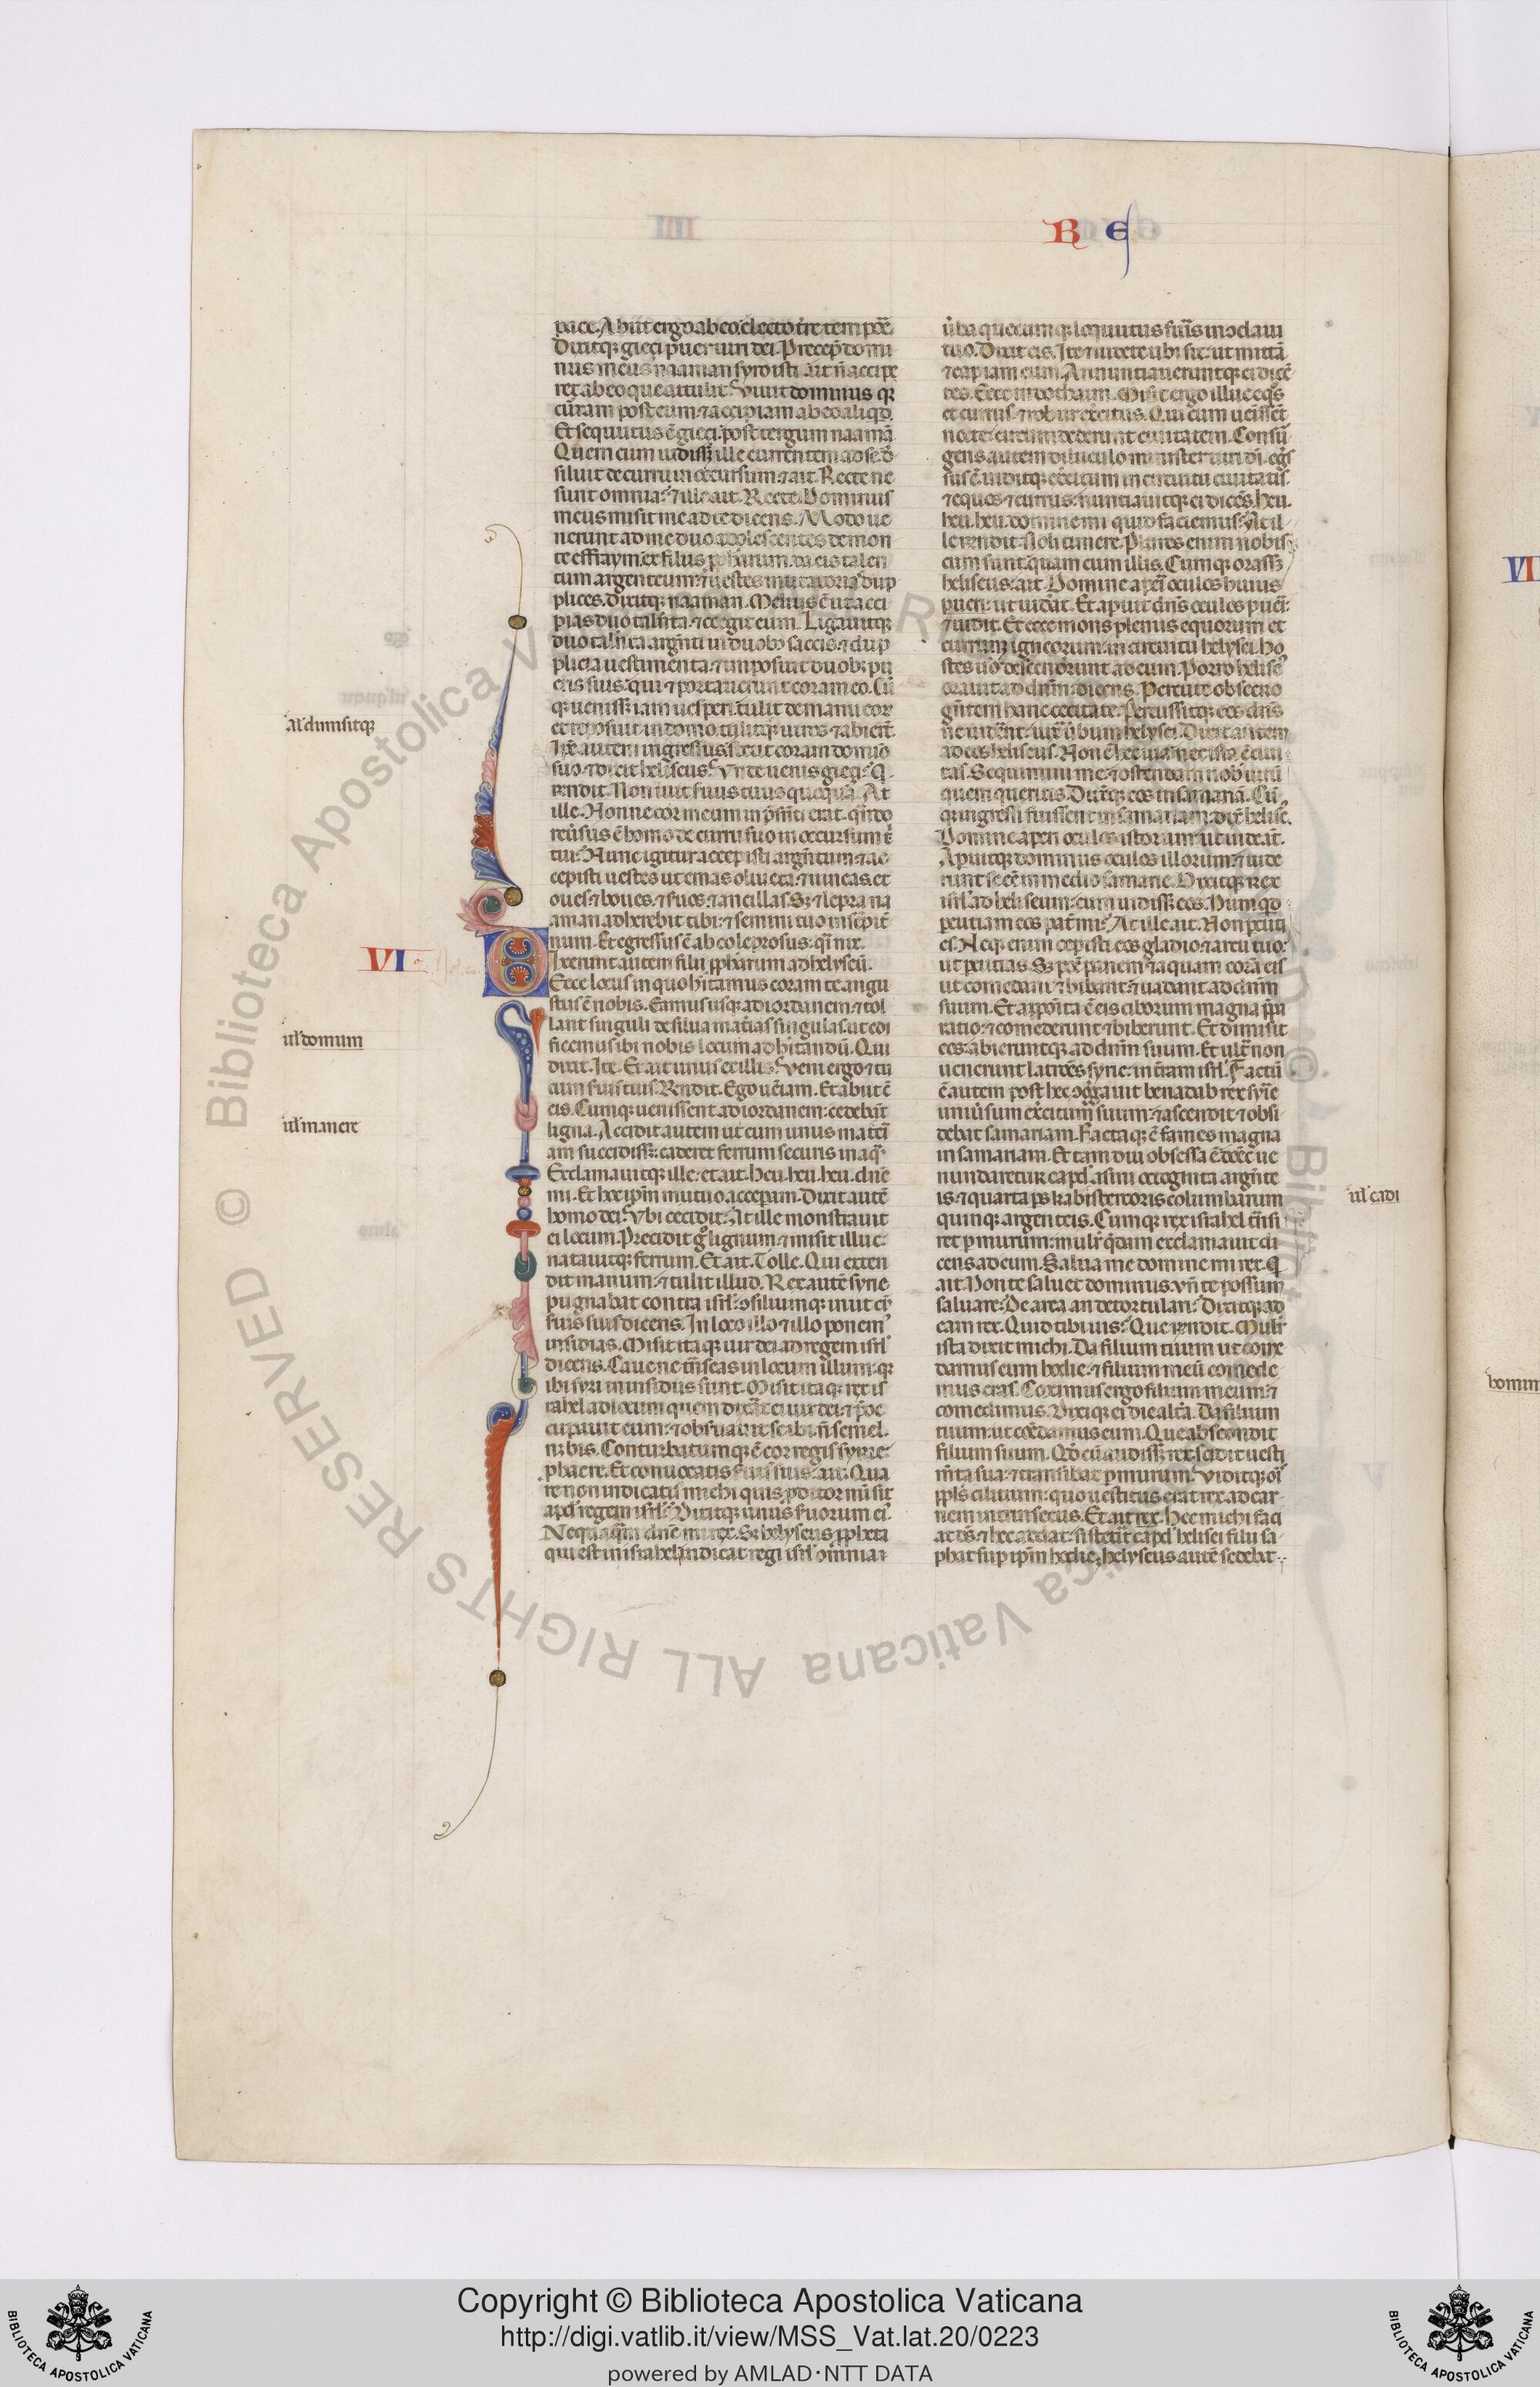 R E
pace. Abiit ergo ab eo electo tr̄e tempoře.
Dixitq; gieçi puer uiri dei. Peperc̄ domi
nus meus naaman syro isti: ut ñ accipe
ret ab eo que attulit. Viuit dominus q
curram post eum: ⁊ accipiam ab eo aliqd.
Et sequutus ē gieçi: post tergum naamā.
Quem cum uidiss; ille currentem ad se: d
siliuit de curru in occursum: ⁊ ait. Recte ne
sunt omnia? Et ille ait. Recte. Dominus
meus misit me ad te dicens. Modo ue
nerunt ad me duo adolescentes de mon
te effraym: ex filiis ꝓphetarum. da eis talen
tum argenteum: ⁊ uestes mutatorias dup
plices. dixitq; naaman. Melius ē ut acci
pias duo talenta: ⁊ coegit eum. Ligauitq;
duo talenta argenti in duob; saccis: ⁊ dup
plicia uestimenta: ⁊ imposuit duob; pu
eris suis: qui ⁊ portauerunt coram eo. Cū
q; ueniss; iam uesperi: tulit de manu eor
et reposuit in domo: dimisitq; uiros ⁊ abierūt.
al' dimisitq;
Ipse autem ingressus: stetit coram domino
suo. ⁊ dixit heliseus. Vnde uenis gieçi? Q
rn̄dit. Non iuit seruus tuus quoquā. At
ille. Nonne cor meum in p̄senti erat. qn̄do
reuersus ē homo de curru suo in occursum t
tui? Nunc igitur accepisti argentum: ⁊ ac
cepisti uestes ut emas oliueta: ⁊ uineas. et
oues: ⁊ boues: ⁊ seruos: ⁊ ancillas. S; ⁊ lepra na
aman adherebit tibi: ⁊ semini tuo in sempit
num. Et egressus ē ab eo leprosus: qi nix.
VI
Dixerunt autem filii ꝓphetarum ad helyseū.
Ecce locus in quo habitamus coram te angu
stus ē nobis. Eamus usq; ad iordanem: ⁊ tol
lant singuli de silua materias singulas: ut edi
ficemus ibi nobis locum ad habitandū. Qui
ul' domum
dixit. Ite. Et ait unus ex illis. Veni ergo ⁊ tu
cum seruis tuis. Rn̄dit. Ego ueniam. Et abiit c
eis. Cumq; uenissent ad iordanem: cedebāt
ligna. Accidit autem ut cum unus materi
ul' manere
am succidiss;: caderet ferrum securis in aq.
Exclamauitq; ille: et ait. Heu. heu. heu. dn̄e
mi. Et hoc ip̄m mutuo acceperam. Dixit autē
homo dei. Vbi cecidit? At ille monstrauit
ei locum. Precidit g° lignum: ⁊ misit illuc:
natauitq; ferrum. Et ait. Tolle. Qui exten
dit manum: ⁊ tulit illud. Rex autē syrie
pugnabat contra isrl': ɔsiliumq; iniit cū
seruis suis dicens. In loco illo ⁊ illo ponem'
insidias. Misit itaq; uir dei ad regem isrl'
dicens. Caue ne trn̄seas in locum illum: q
ibi syri in insidiis sunt. Misit itaq; rex is
rahel ad locum quem dixerat ei uir dei: ⁊ p̄oc
cupauit eum: ⁊ obseruauit se ibi: n̄ semel
n; bis. Conturbatumq; ē cor regis syrie
pro hac re. Et conuocatis seruis suis: ait. Qua
re non indicatis michi quis ꝓditor mei sit
apud regem isrl'? Dixitq; unus seruorum ei'.
Nequaquam dn̄e mi rex. S; helyseus ꝓpheta
qui est in israhel: indicat regi isrl' omnia
uerba quecumq; loquutus fueris in ɔclaui
tuo. Dixit eis. Ite ⁊ uidete ubi sit: ut mittā
⁊ capiam eum. Annuntiaueruntq; ei dicē
tes. Ecce in dothaim. Misit ergo illuc eqs
et currus: ⁊ robur exercitus. Qui cum uenissēt
nocte: circumdederunt ciuitatem. Consur
gens autem diluculo minister uiri di: egs
sus ē. uiditq; exercitum in circuitu ciuitatis.
⁊ equos ⁊ currus: nuntiauitq; ei dicēs. heu.
heu. heu. domine mi quid faciemus? At il
le rn̄dit. Noli timere. Plures enim nobis
cum sunt: quam cum illis. Cumq; orass;
heliseus: ait. Domine aperi oculos huius
pueri: ut uideat. Et aperuit dn̄s oculos pueri:
⁊ uidit. Et ecce mons plenus equorum et
curruum igneorum: in circuitu helysei. Ho
stes uo descenderunt ad eum. Porro helise'
orauit ad dn̄m: dicens. Percute obsecro
gentem hanc cecitate. Percussitq; eos dn̄s
ne uiderent: iuxta uerbum helysei. Dixit autem
ad eos heliseus. Non ē hec uia: nec ista ē ciui
tas. Sequimini me: ⁊ ostendam nob uirū
quem queritis. Duxitq; eos in samariā. Cū
q; ingressi fuissent in samariam: dixit helise'.
Domine aperi oculos istorum: ut uideāt.
Aperuitq; dominus oculos illorum: ⁊ uide
runt se eē in medio samarie. Dixitq; rex
isrl' ad heliseum: cum uidiss; eos. Numqd
percutiam eos pater mi? At ille ait. Non percuti
es. Neq; enim cepisti eos gladio: ⁊ arcu tuo:
ut percutias. S; pone panem ⁊ aquam corā eis
ut comedant ⁊ bibant: ⁊ uadant ad dn̄m
suum. Et apposita ē eis ciborum magna p̄pa
ratio: ⁊ comederunt ⁊ biberunt. Et dimisit
eos: abieruntq; ad dn̄m suum. Et ultra non
uenerunt latrones syrie: in terram isrl'. Factū
ē autem post hec: ɔgregauit benadab rex syrie
uniuersum exercitum suum: ⁊ ascendit ⁊ obsi
debat samariam. Factaq; ē fames magna
in samariam. Et tam diu obsessa ē: donec ue
nundaretur capud asini octoginta argente
is: ⁊ quarta pars kabi stercoris columbarum
ul' cadi
quinq; argenteis. Cumq; rex israhel trn̄si
ret p murum: mulier qdam exclamauit di
cens ad eum. Salua me domine mi rex. Q
ait. Non te saluet dominus. vn̄ te possum
saluare? De area an de torculari? Dixitq; ad
eam rex. Quid tibi uis? Que rn̄dit. Mulier
ista dixit michi. Da filium tuum ut come
damus eum hodie: ⁊ filium meū comede
mus cras. Coximus ergo filium meum: ⁊
comedimus. Dixiq; ei die altera. Da filium
tuum: ut comedamus eum. Que abscondit
filium suum. Qd cū audiss; rex: scidit uesti
menta sua: ⁊ transibat p murum. Viditq; oīs
ppls cilicium: quo uestitus erat rex ad car
nem intrinsecus. Et ait rex. Hec michi faci
at ds: ⁊ hec addat: si steterit capud helisei filii sa
phat sup ip̄m hodie. helyseus autē sedebat
VII
Copyright © Biblioteca Apostolica Vaticana
http://digi.vatlib.it/view/MSS_Vat.lat.20/0223
powered by AMLAD·NTT DATA
© Biblioteca Apostolica Vaticana ALL RIGHTS RESERVED
BIBLIOTECA APOSTOLICA VATICANA
BIBLIOTECA APOSTOLICA VATICANA